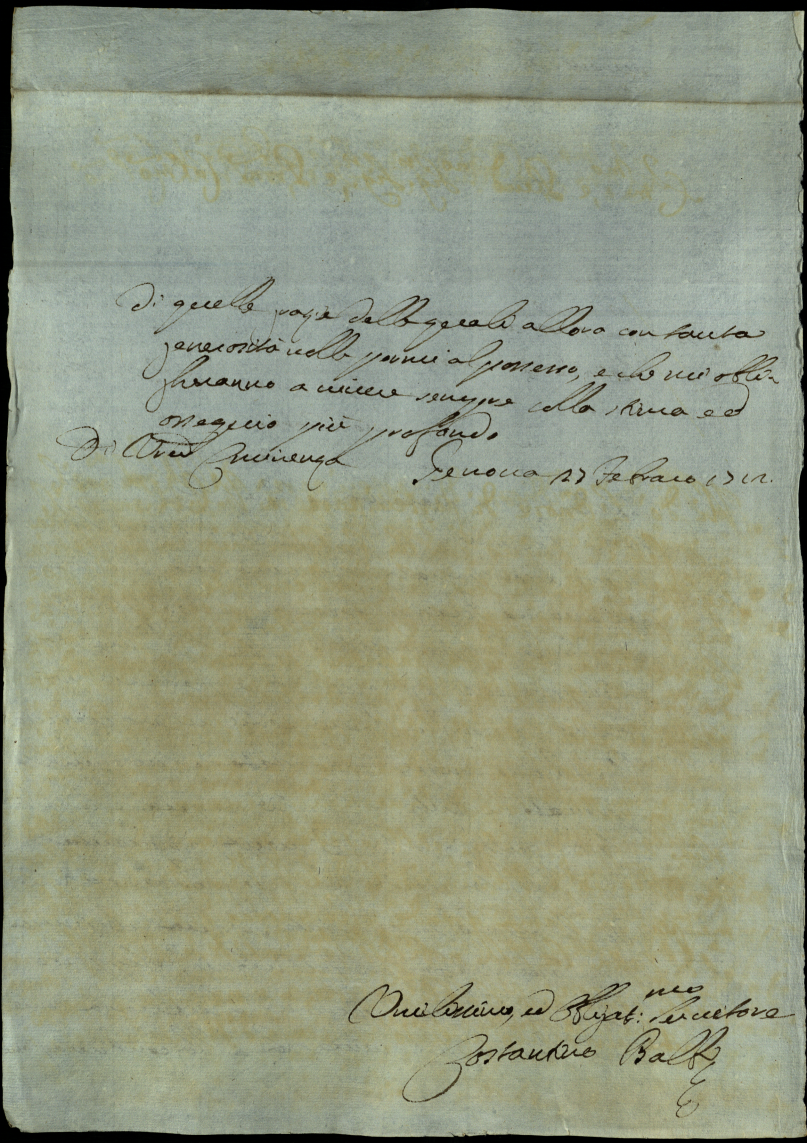 Di quelle grazie delle quali allora con tanta
generosità volle pormi al possesso, e che mi obbli-
gheranno a vivere sempre colla stima ed
ossequio più profondo
Di Vra Eminenza Genova 27 Febraro 1712.
Umilissimo, ed Obligat:mo Servitore
Costantino Balbi